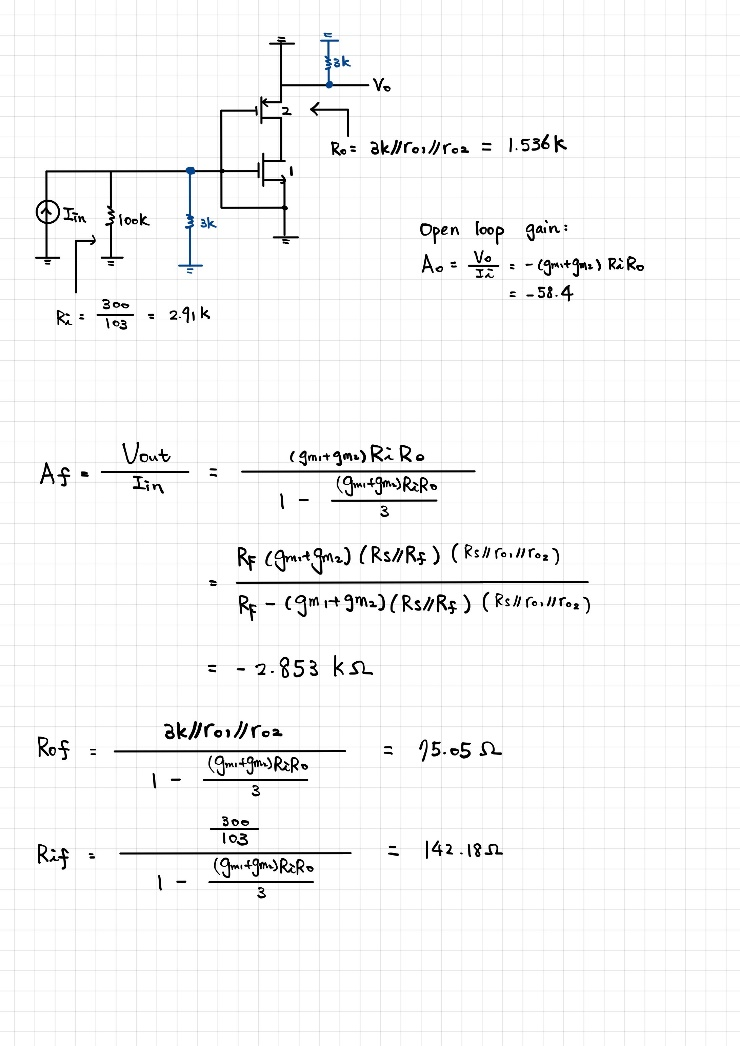 3k
Vo
2
Ro = 3k//ro1//ro2 = 1.536k
1
Iin
100k
3k
Open loop gain:
Ao = Vo/Ii = -(gm1+gm2) RiRo
= -58.4
Ri = 300/103 = 2.91k
Af = Vout/Iin = (gm1+gm2)RiRo / 1 - (gm1+gm2)RiRo/3
= RF(gm1+gm2)(Rs//Rf)(Rs//ro1//ro2) / RF-(gm1+gm2)(Rs//Rf)(Rs//ro1//ro2)
= -2.853 kΩ
Rof = 3k//ro1//ro2 / 1 - (gm1+gm2)RiRo/3 = 75.05 Ω
Rif = 300/103 / 1 - (gm1+gm2)RiRo/3 = 142.18Ω